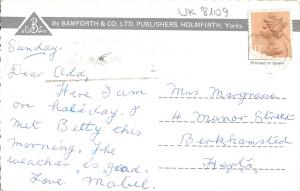 UK 8109
By BAMFORTH & CO. LTD. PUBLISHERS, HOLMFIRTH, Yorks.
Printed in Spain
Sunday.
Dear
Here I am
on holiday. I
met Betty this
morning. The
weather is good.
Love Mabel.
Mrs Margrave
4 Manor Street
Berkhamsted
Herts.